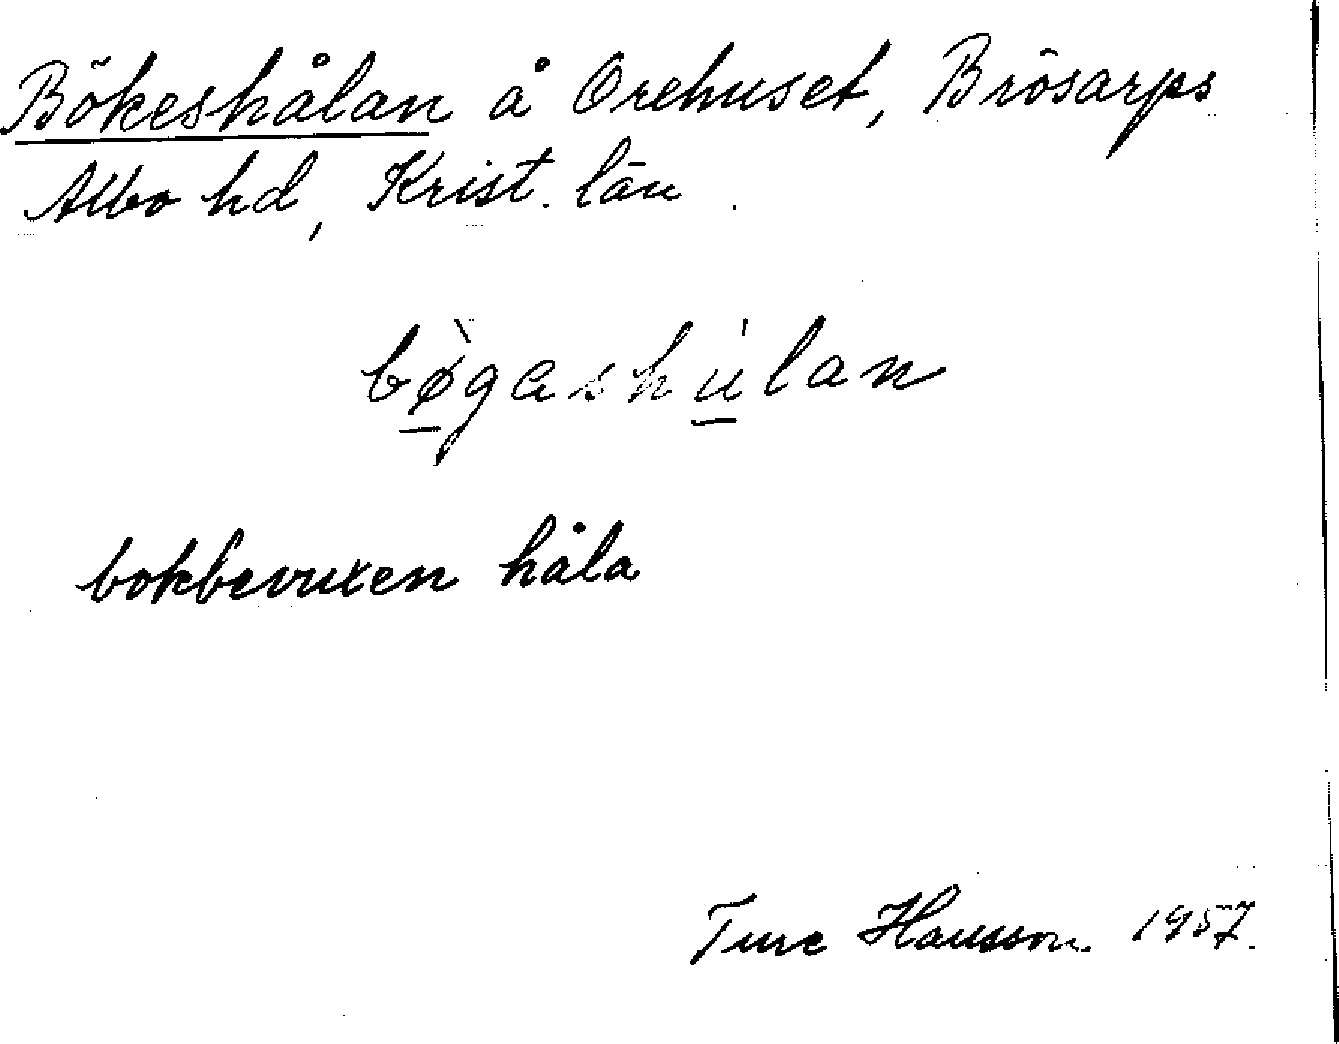 Bökeshålan å Orehuset, Brösarps
Albo hd, Krist. län.
bø̀gashùlan
bokbevuxen håla
Ture Hansson 1957.